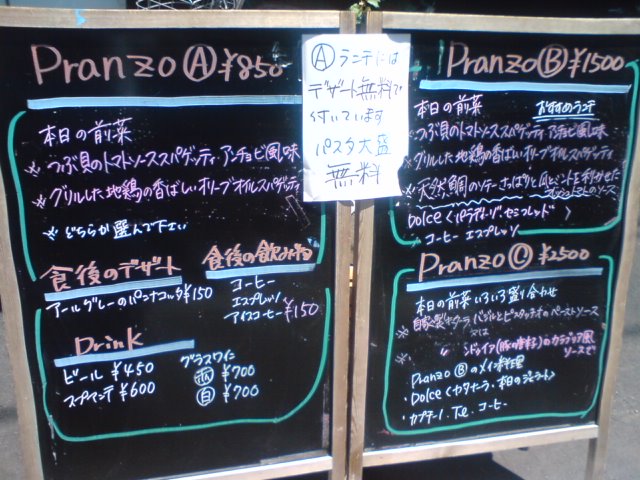 Pranzo Ⓐ ¥850
本日の前菜
※つぶ貝のトマトソーススパゲッティ・アンチョビ風味
※グリルした地鶏の香ばしいオリーブオイルスパゲッティ
※どちらか選んで下さい
食後のデザート
アールグレーのパンナコッタ ¥150
食後の飲み物
コーヒー
エスプレッソ
アイスコーヒー ¥150
Drink
ビール ¥450
スプマンテ ¥600
グラスワイン
赤 ¥700
白 ¥700
Ⓐランチには
デザート無料で
付いています
パスタ大盛
無料
Pranzo Ⓑ ¥1500
本日の前菜 おすすめランチ
※つぶ貝のトマトソーススパゲッティ・アンチョビ風味
※グリルした地鶏の香ばしいオリーブオイルスパゲッティ
※天然鯛のソテーさっぱりと
トマトのソース
Dolce
コーヒー エスプレッソ
Pranzo Ⓒ ¥2500
本日の前菜いろいろ盛り合わせ
※自家製 バジルとピスタチオのペーストソース
又は
※ンドゥイア のカラブリア風
ソースで
・Pranzo Ⓑのメイン料理
・Dolce 本日のジェラート
・カプチーノ・Te・コーヒー